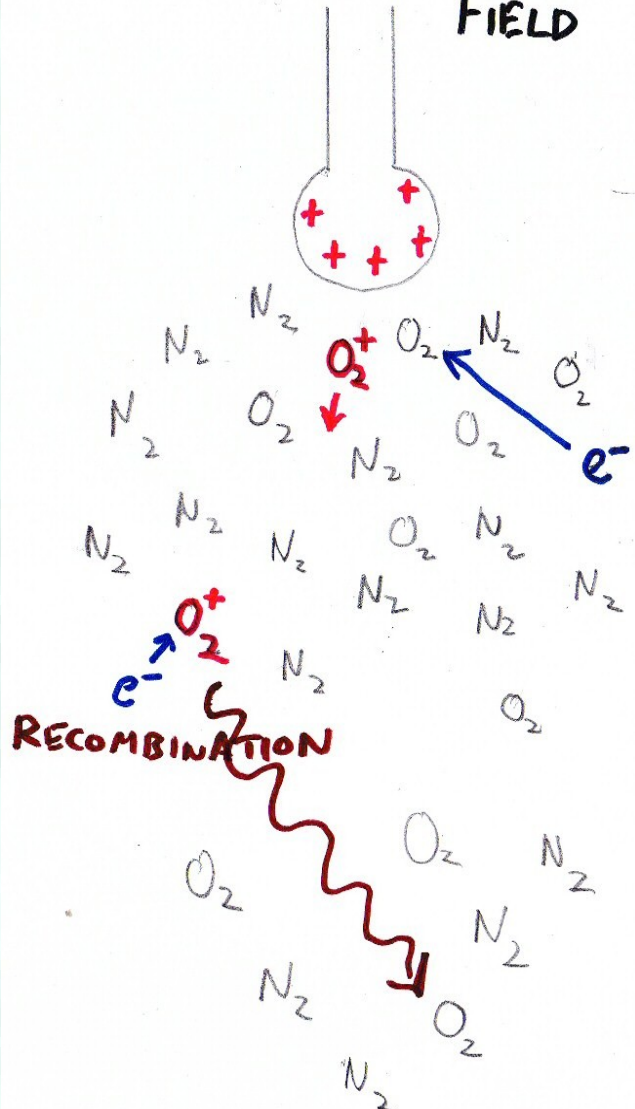 FIELD
+ +
+ + +
N₂ N₂ O₂⁺ O₂ N₂ O₂
N₂ O₂ N₂ O₂ e⁻
N₂ N₂ N₂ O₂ N₂
O₂⁺ N₂ N₂ N₂
e⁻ N₂ O₂
RECOMBINATION
O₂ O₂ N₂
N₂ N₂ O₂
N₂